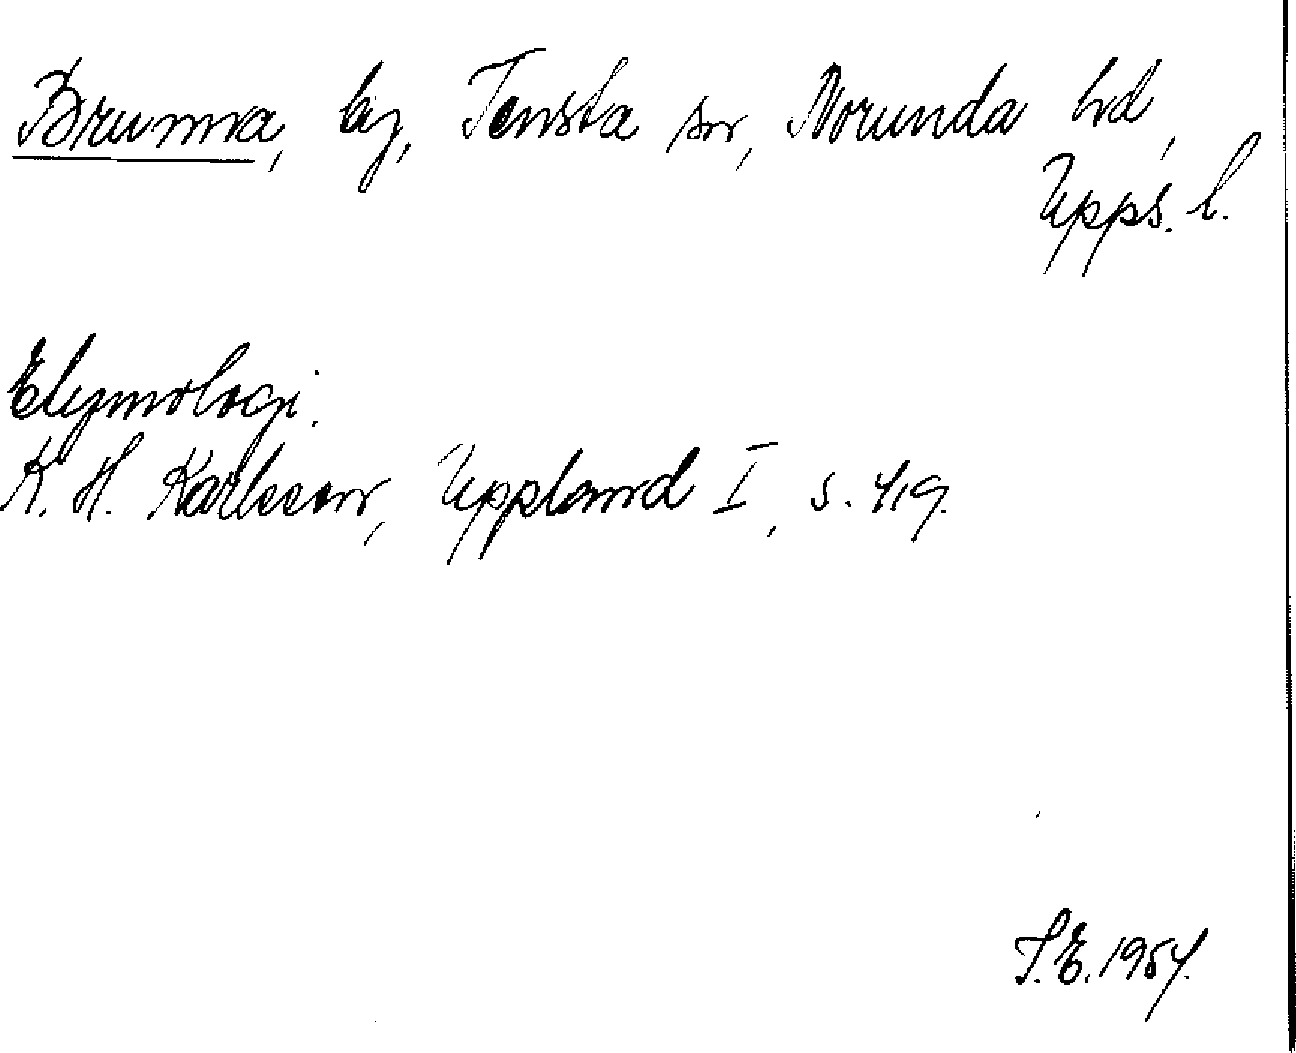 Brunna, by, Tensta sn, Norunda hd,
Upps. l.
Etymologi.
K. H. Karlsson, Uppland I, s. 419.
S.E. 1954.